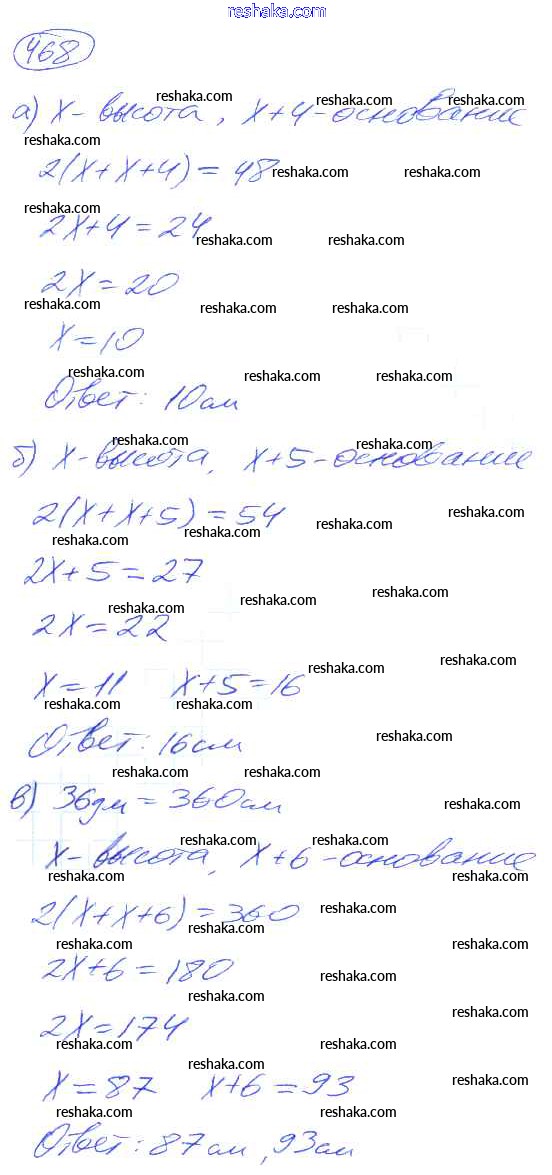 reshaka.com
468
а) x - высота, x+4 - основание
2(x+x+4) = 48
2x+4 = 24
2x = 20
x = 10
Ответ: 10см
б) x - высота, x+5 - основание
2(x+x+5) = 54
2x+5 = 27
2x = 22
x = 11 x+5 = 16
Ответ: 16см
в) 36дм = 360см
x - высота, x+6 - основание
2(x+x+6) = 360
2x+6 = 180
2x = 174
x = 87 x+6 = 93
Ответ: 87см, 93см